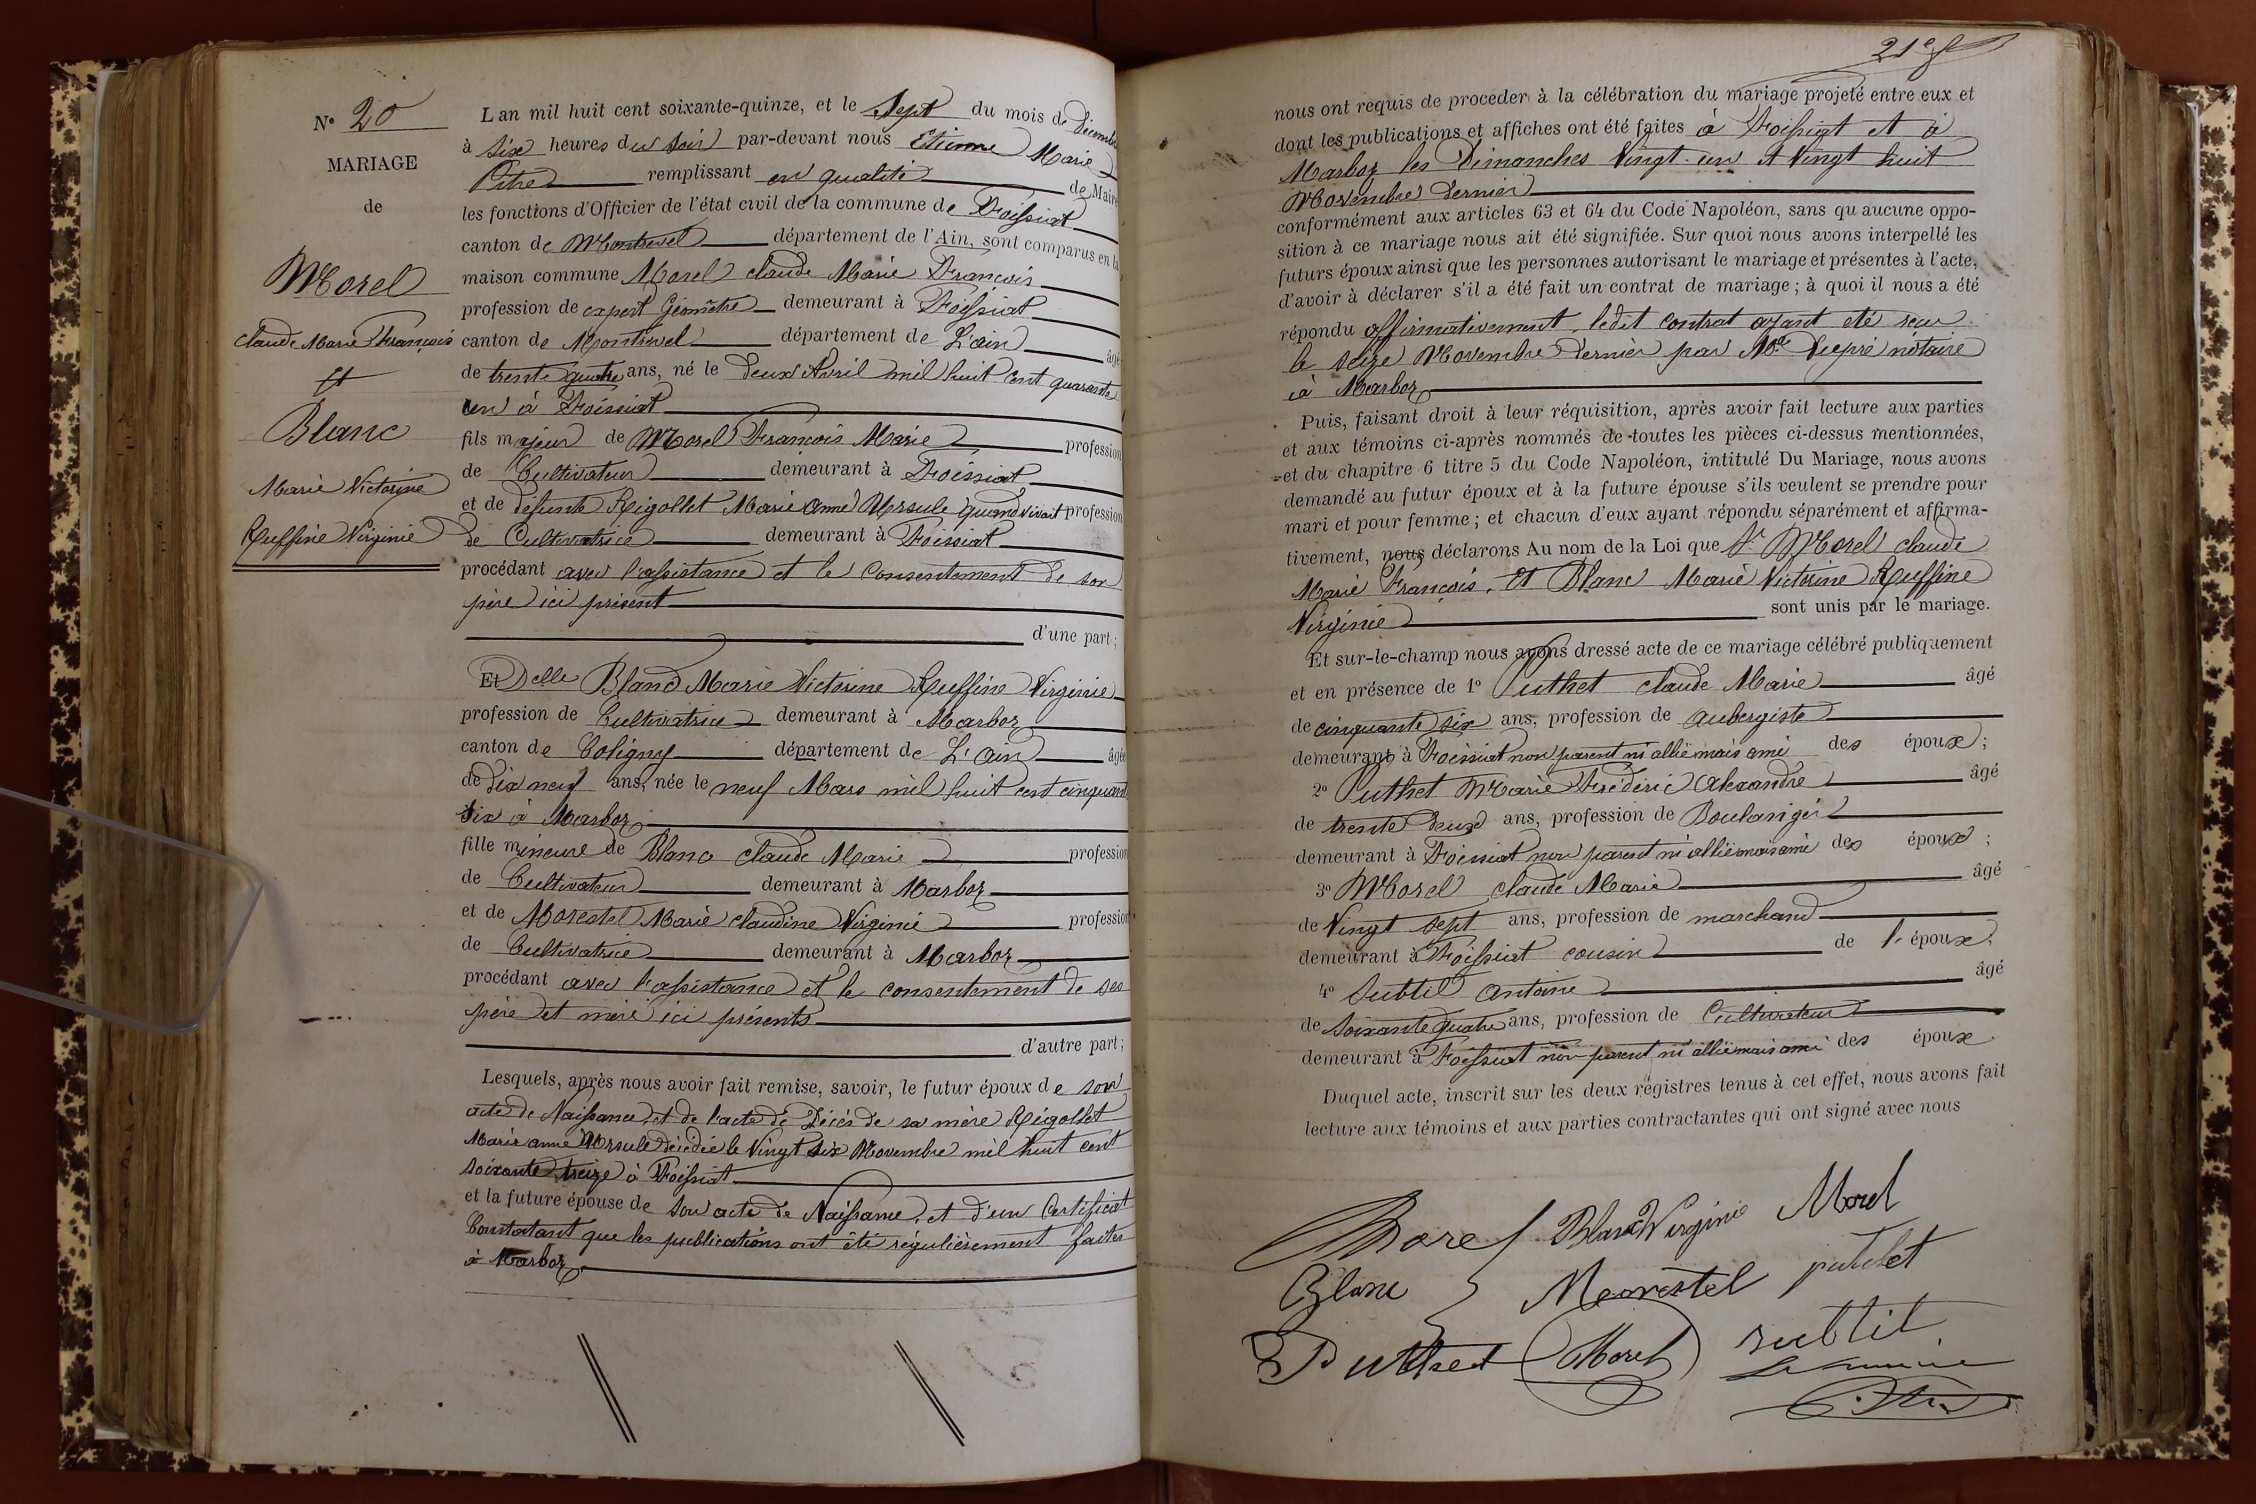 N° 20
MARIAGE
de
Morel
Claude Marie François
et
Blanc
Marie Victorine
Ruffine Virginie
L'an mil huit cent soixante-quinze, et le Sept du mois de Décembre
à six heures du soir par-devant nous Etienne Marie
Pitre remplissant en qualité de Maire
les fonctions d'Officier de l'état civil de la commune de Foissiat
canton de Montrevel département de l'Ain, sont comparus en la
maison commune Morel Claude Marie François
profession de expert Géomètre demeurant à Foissiat
canton de Montrevel département de L'ain âgé
de trente quatre ans, né le deux Avril mil huit cent quarante
un à Foissiat
fils majeur de Morel François Marie profession
de Cultivateur demeurant à Foissiat
et de défunte Rigollet Marie anne Ursule quand vivait profession
de Cultivatrice demeurant à Foissiat
procédant avec l'assistance et le consentement de son
père ici présent
d'une part;
Et Delle Blanc Marie Victorine Ruffine Virginie
profession de Cultivatrice demeurant à Marboz
canton de Coligny département de L'ain âgée
de dix neuf ans, née le neuf Mars mil huit cent cinquante
six à Marboz
fille mineure de Blanc Claude Marie profession
de Cultivateur demeurant à Marboz
et de Morestel Marie Claudine Virginie profession
de Cultivatrice demeurant à Marboz
procédant avec l'assistance et le consentement de ses
père et mère ici présents
d'autre part;
Lesquels, après nous avoir fait remise, savoir, le futur époux de son
acte de Naissance, et de l'acte de Décès de sa mère Rigollet
Marie anne Ursule décédée le Vingt six Novembre mil huit cent
soixante treize à Foissiat
et la future épouse de son acte de Naissance, et d'un Certificat
Constatant que les publications ont été régulièrement faites
à Marboz
21e
nous ont requis de procéder à la célébration du mariage projeté entre eux et
dont les publications et affiches ont été faites à Foissiat et à
Marboz les Dimanches Vingt-un et Vingt huit
Novembre dernier
conformément aux articles 63 et 64 du Code Napoléon, sans qu'aucune oppo-
sition à ce mariage nous ait été signifiée. Sur quoi nous avons interpellé les
futurs époux ainsi que les personnes autorisant le mariage et présentes à l'acte,
d'avoir à déclarer s'il a été fait un contrat de mariage; à quoi il nous a été
répondu affirmativement, ledit contrat ayant été reçu
le seize Novembre dernier par Me Dupré notaire
à Marboz
Puis, faisant droit à leur réquisition, après avoir fait lecture aux parties
et aux témoins ci-après nommés de toutes les pièces ci-dessus mentionnées,
et du chapitre 6 titre 5 du Code Napoléon, intitulé Du Mariage, nous avons
demandé au futur époux et à la future épouse s'ils veulent se prendre pour
mari et pour femme; et chacun d'eux ayant répondu séparément et affirma-
tivement, nous déclarons Au nom de la Loi que Sr Morel Claude
Marie François, et Blanc Marie Victorine Ruffine
Virginie sont unis par le mariage.
Et sur-le-champ nous avons dressé acte de ce mariage célébré publiquement
et en présence de 1° Puthet Claude Marie âgé
de cinquante six ans, profession de aubergiste
demeurant à Foissiat non parent ni allié mais ami des époux;
2° Puthet Marie Frédéric Alexandre âgé
de trente deux ans, profession de Boulanger
demeurant à Foissiat non parent ni allié mais ami des époux;
3° Morel Claude Marie âgé
de Vingt sept ans, profession de marchand
demeurant à Foissiat cousin de l'époux,
4° Subtil Antoine âgé
de soixante quatre ans, profession de Cultivateur
demeurant à Foissiat non parent ni allié mais ami des époux
Duquel acte, inscrit sur les deux régistres tenus à cet effet, nous avons fait
lecture aux témoins et aux parties contractantes qui ont signé avec nous
Morel Blanc Virginie Morel
Blanc Morestel puthet
Puthet Morel subtil
Le maire
Pitre